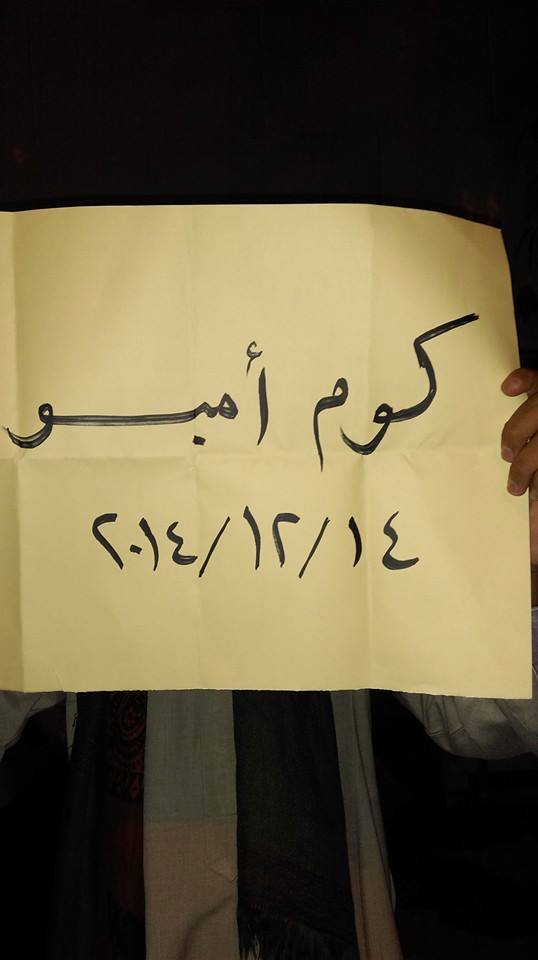 كوم أمبو
١٤/١٢/٢٠١٤